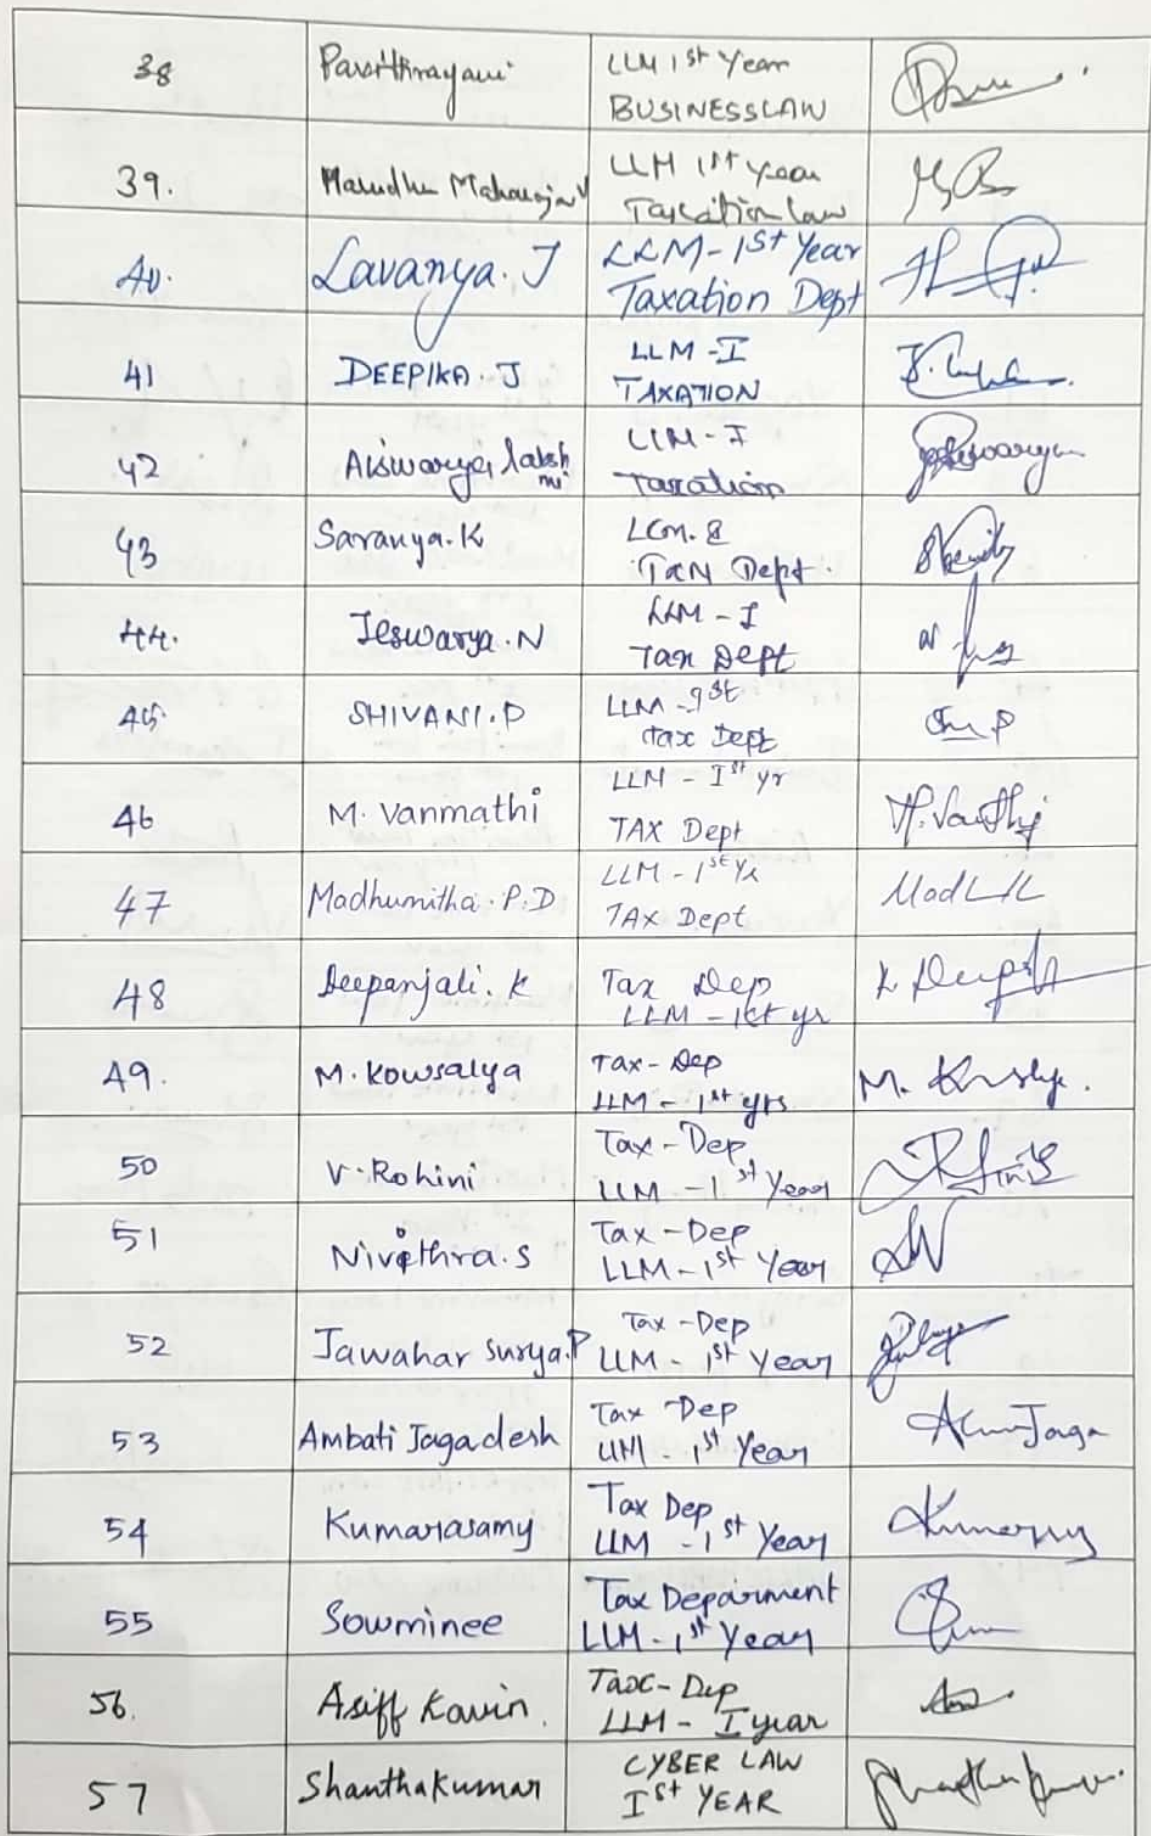 38 Pavithrayani LLM 1st Year
BUSINESSLAW
39. Marudhu Maharajan LLM 1st year
Taxation law
40. Lavanya. J LLM-1st Year
Taxation Dept
41 DEEPIKA. J LLM -I
TAXATION
J.
42 Aiswarya laksh LLM-I
mi Taxation
43 Saranya.K LLM.
Tax Dept.
44. Ieswarya.N LLM - I
Tax Dept
45 SHIVANI.P LLM - Ist
tax Dept
46 M. Vanmathi LLM - Ist yr
TAX Dept
47 Madhumitha. P.D LLM - 1st Yr
TAX Dept
48 Deepanjali. K Tax Dep
LLM - 1st yr
49. M. Kowsalya Tax - Dep
LLM - 1st yrs
M.
50 V. Rohini Tax - Dep
LLM - 1st Year
51 Nivethra.S Tax - Dep
LLM - 1st Year
52 Jawahar Surya.P Tax - Dep
LLM - 1st Year
53 Ambati Jagadesh Tax Dep
LLM - 1st Year
54 Kumarasamy Tax Dep
LLM - 1st Year
55 Sowminee Tax Deparment
LLM - 1st Year
56. Asiff Kavin. Tax - Dep
LLM - I year
57 Shanthakumar CYBER LAW
Ist YEAR